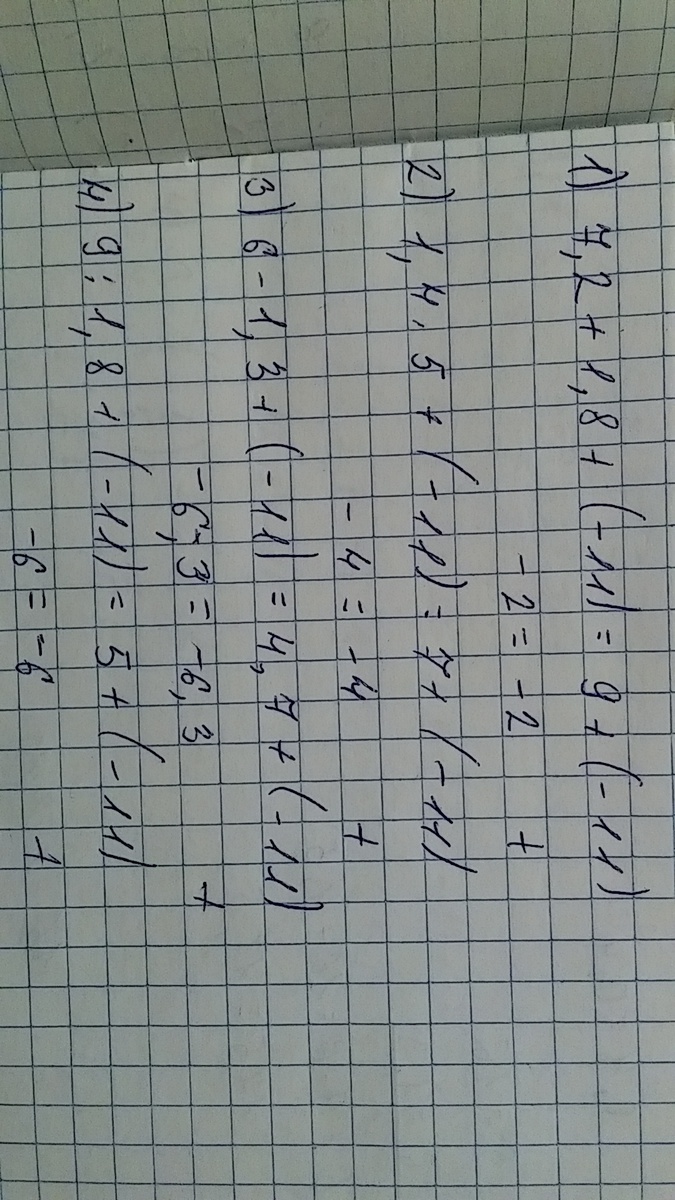 1) 7,2 + 1,8 + (-11) = 9 + (-11)
-2 = -2 +
2) 1,4 · 5 + (-11) = 7 + (-11)
-4 = -4 +
3) 6 - 1,3 + (-11) = 4,7 + (-11)
-6,3 = -6,3 +
4) 9 : 1,8 + (-11) = 5 + (-11)
-6 = -6 +